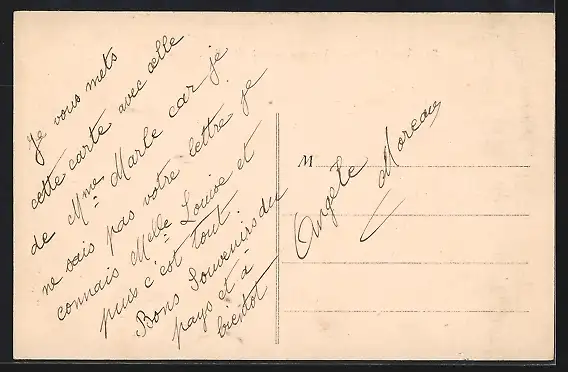 Je vous mets
cette carte avec celle
de Mme Marle car je
ne sais pas votre lettre je
connais Melle Louise et
puis c'est tout.
Bons Souvenirs du
pays et à
bientot
M
Angele
Moreau